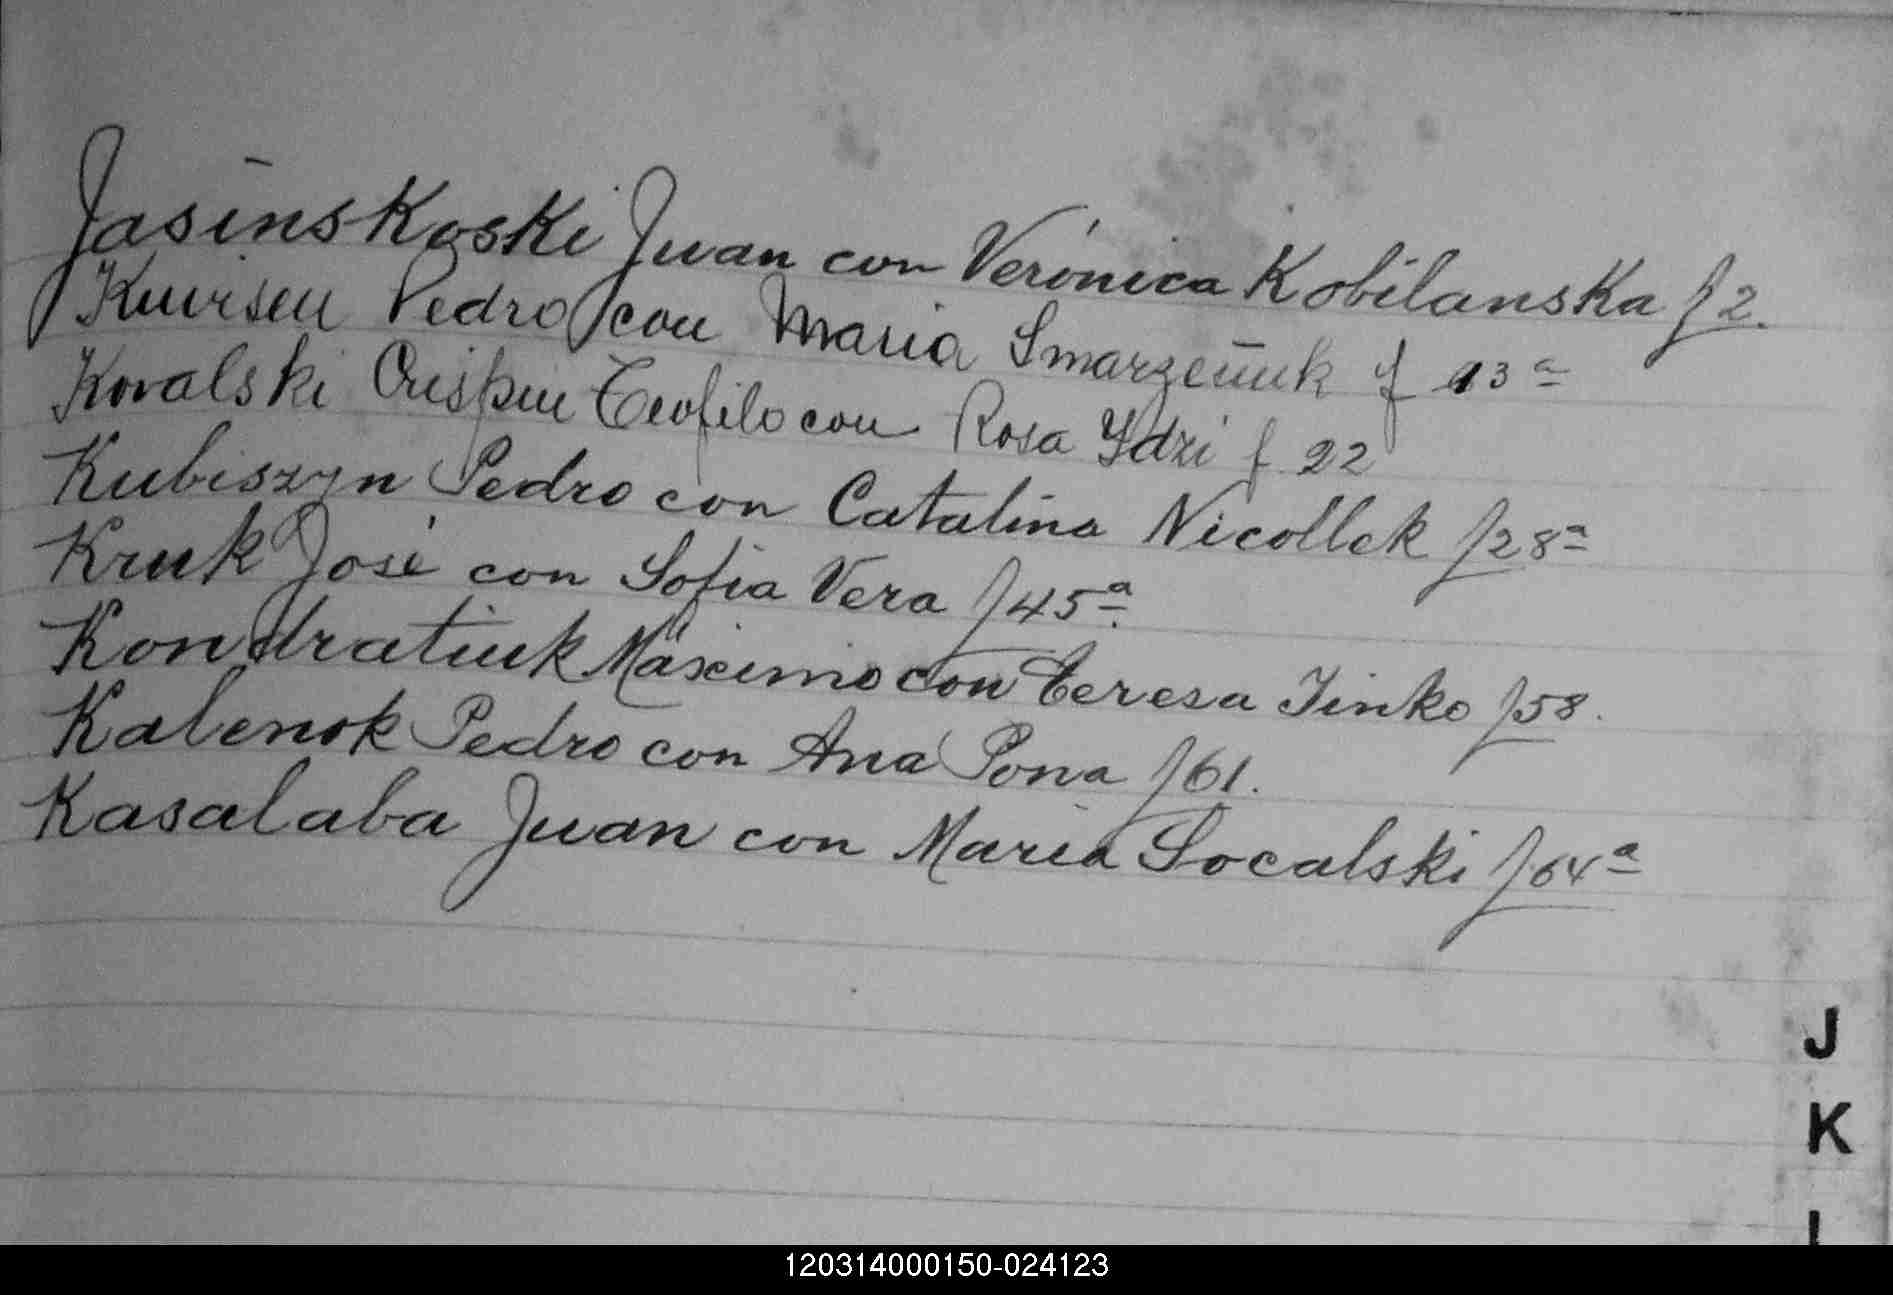 Jasinskoski Juan con Verónica Kobilanska f 2.
Pedro con Maria f 13a
Kovalski Crispin Teofilo con Rosa Ydzi f 22
Kubiszyn Pedro con Catalina Nicollek f 28a
Kruk José con Sofia Vera f 45a
Kondratiuk Máximo con Teresa Jinko f 58.
Kalenok Pedro con Ana Pona f 61.
Kasalaba Juan con Maria Socalski f 64a
J
K
L
120314000150-024123